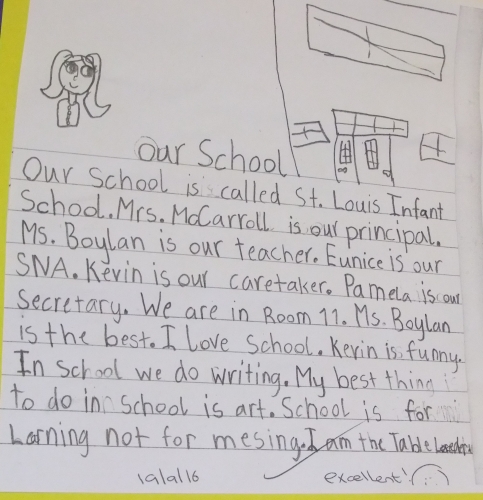 Our School
Our School is called St. Louis Infant
School. Mrs. McCarroll is our principal.
Ms. Boylan is our teacher. Eunice is our
SNA. Kevin is our caretaker. Pamela is our
Secretary. We are in Room 11. Ms. Boylan
is the best. I Love School. Kevin is funny.
In School we do writing. My best thing
to do in School is art. School is for
Larning not for mesing. I am the Table
19/9/16 excellent!